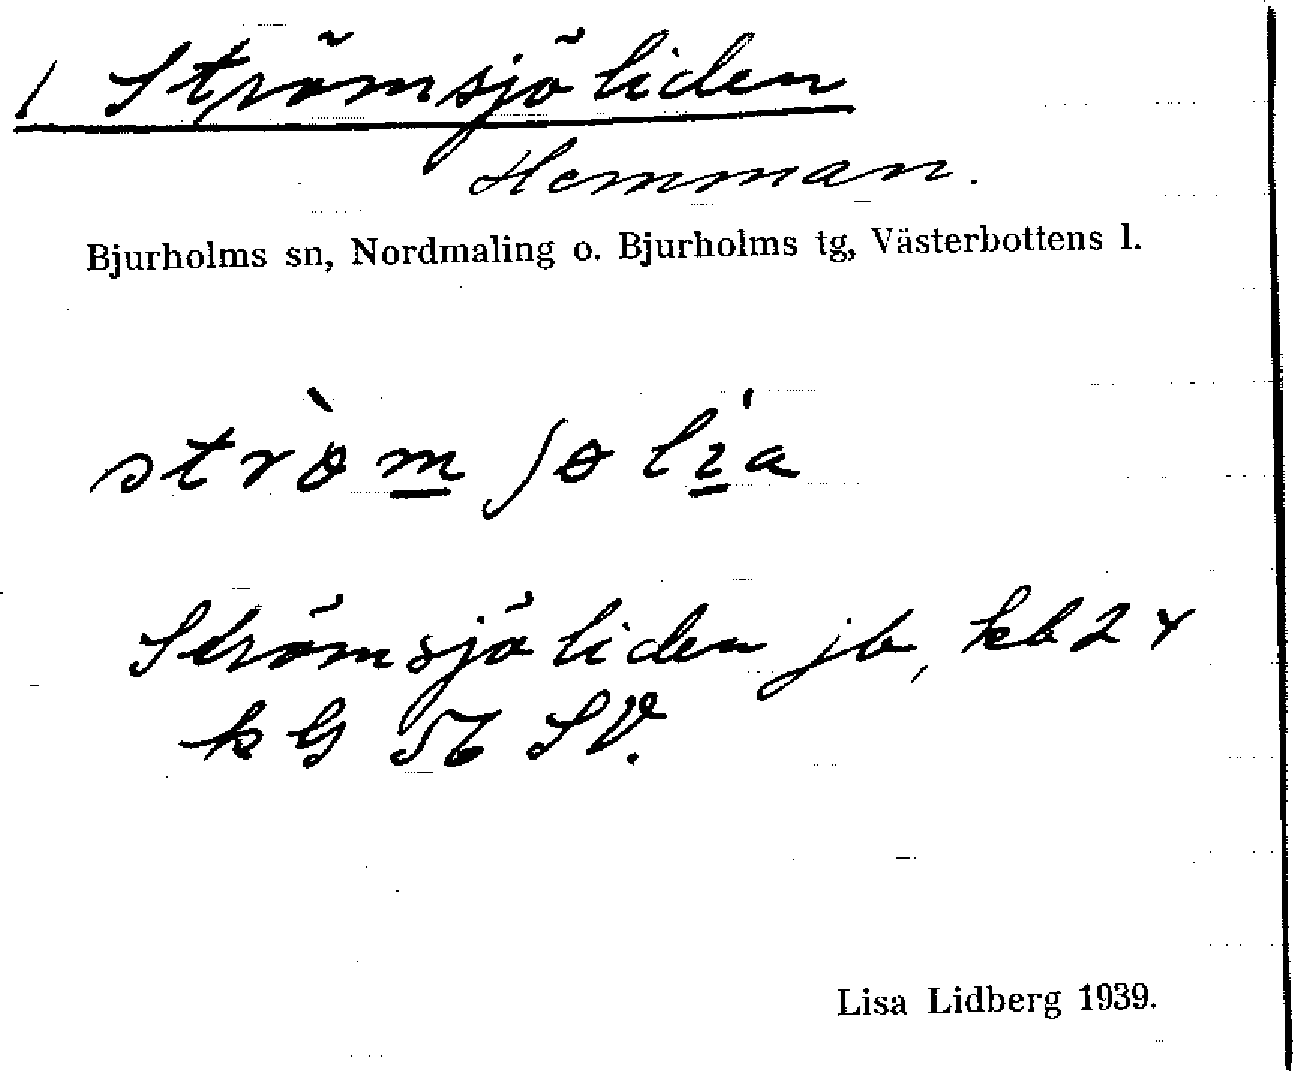 1 Strömsjöliden
Hemman.
Bjurholms sn, Nordmaling o. Bjurholms tg, Västerbottens l.
Strömsjöliden jb, kb 2 r
k G
Lisa Lidberg 1939.